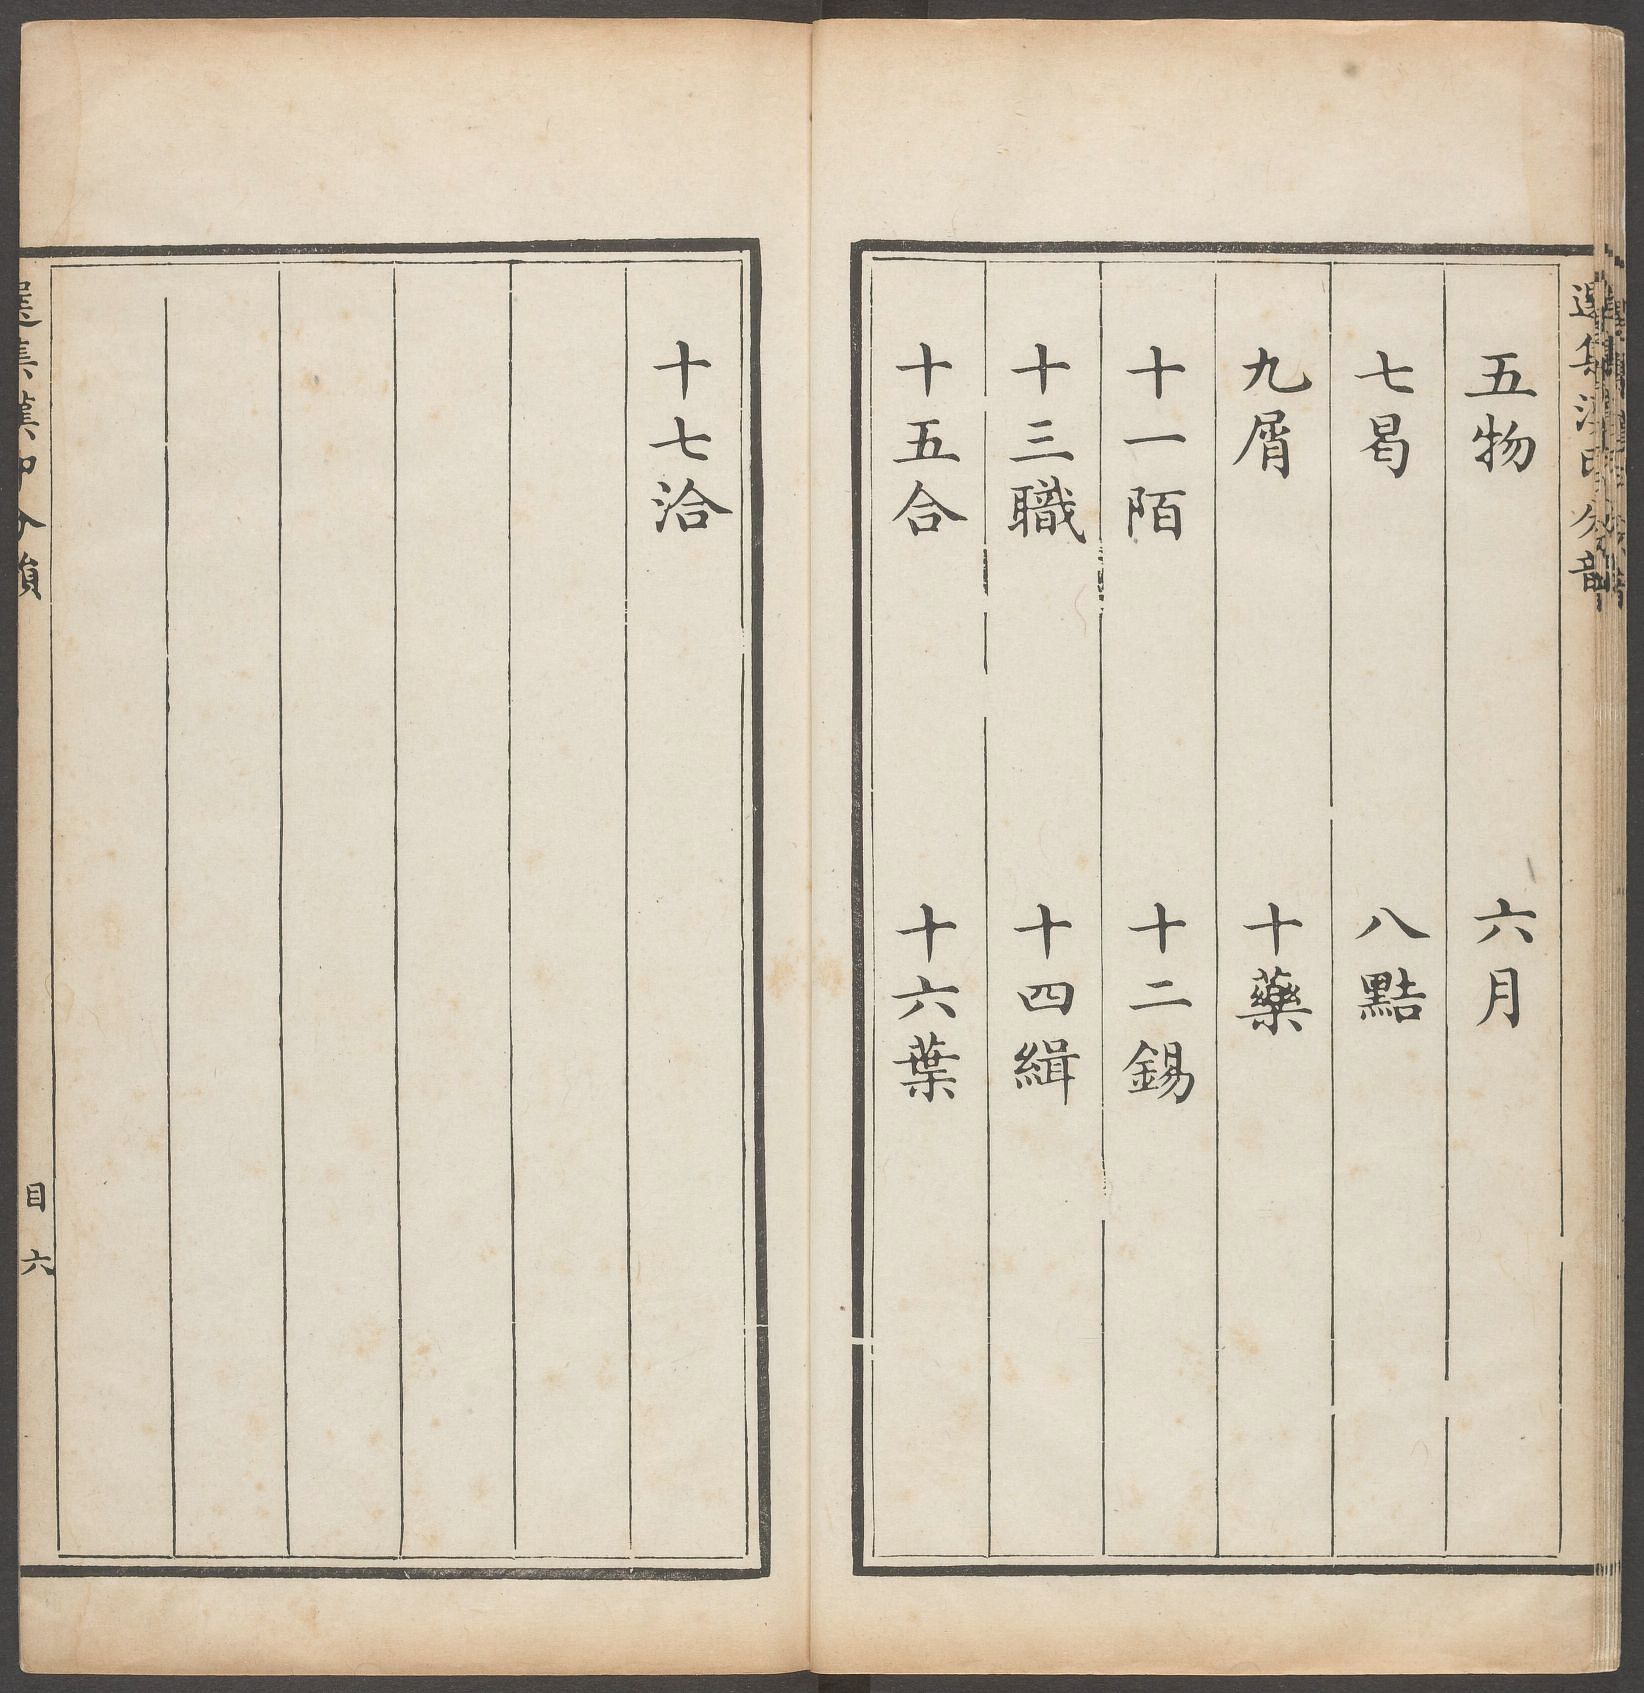 五物　六月
七曷　八黠
九屑　十藥
十一陌　十二錫
十三職　十四緝
十五合　十六葉
十七洽
選集漢印分韻
目六